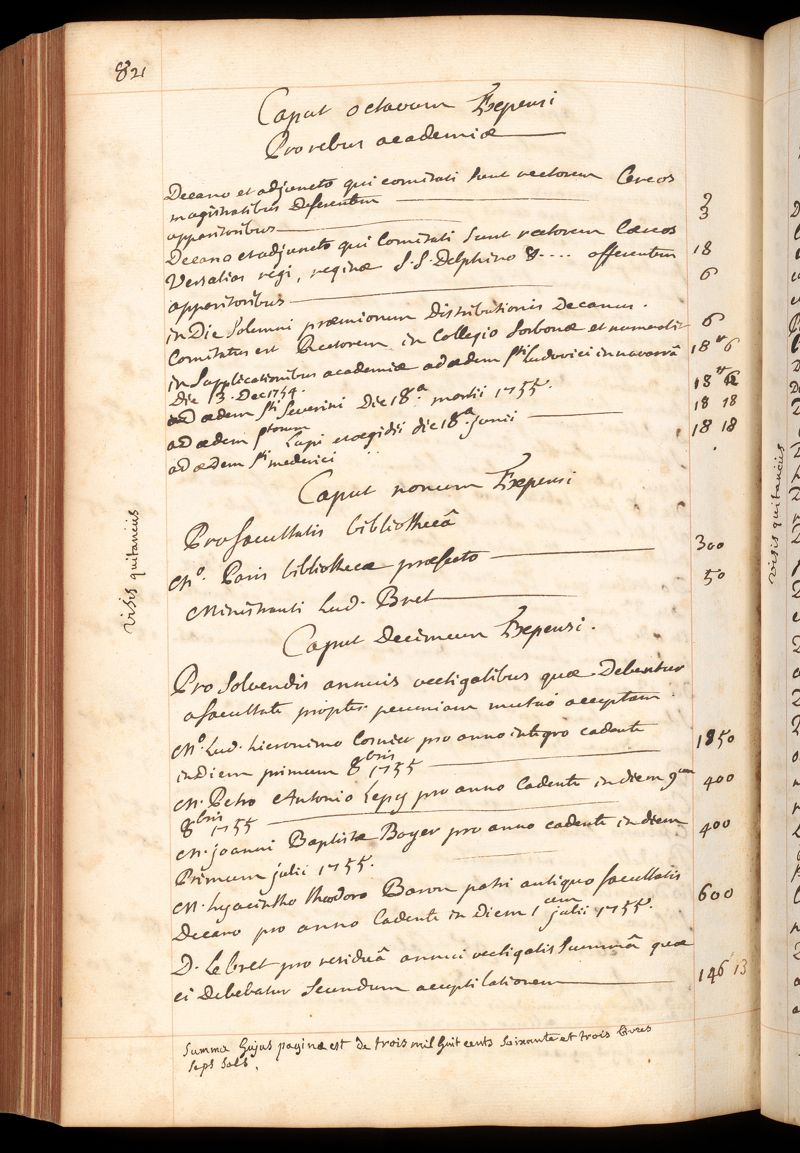 821
Caput octavum Expensi
Pro rebus academiæ
Decano et adjuncto qui comitati sunt rectorem Cereos
magistratibus Deferentem 2
apparitoribus 3
Decano et adjuncto qui Comitati sunt rectorem Cæreos
Versalias regi, reginæ S.S. Delphino &.... offerentem 18
apparitoribus 6
in Die Solemni præmiorum Distributionis Decanus.
Comitatus est Rectorem in Collegio Sorbonæ et numerat 6
in Supplicationibus academiæ ad ædem Sti Ludovici in navarrâ 18 tt 6
Die 13. Dec 1754.
ad ædem Sti Severini Die 18.a martii 1755. 18 tt
ad ædem storum Lupi et ægidii die 18.a Junii 18 18
ad ædem Sti mederici 18 18
Caput nonum Expensi
Pro facultatis bibliothecâ
M.o Paris bibliothecæ præfecto 300
Ministranti Lud. Bret 50
Caput Decimum Expensi.
Pro Solvendis annuis vectigalibus quæ Debentur
a facultate propter pecuniam mutuò acceptam
M.o Lud. hieronimo Cornier pro anno integro cadente
in diem primum 8bris 1755 1850
M. Petro Antonio Lepy pro anno Cadente in diem 9am
8bris 1755 400
M. joanni Baptistæ Boyer pro anno cadente in diem
Primum julii 1755. 400
M. hyacintho theodoro Baron patri antiquo facultatis
Decano pro anno Cadente in Diem 1am julii 1755. 600
D. Le bret pro residuâ annui vectigalis Summâ quæ
ei Debebatur Secundum acceptilationem 146 13
Summa hujus paginæ est de trois mil huit cents soixante et trois livres
sept sols.
Visis quitanciis
Visis quitanciis